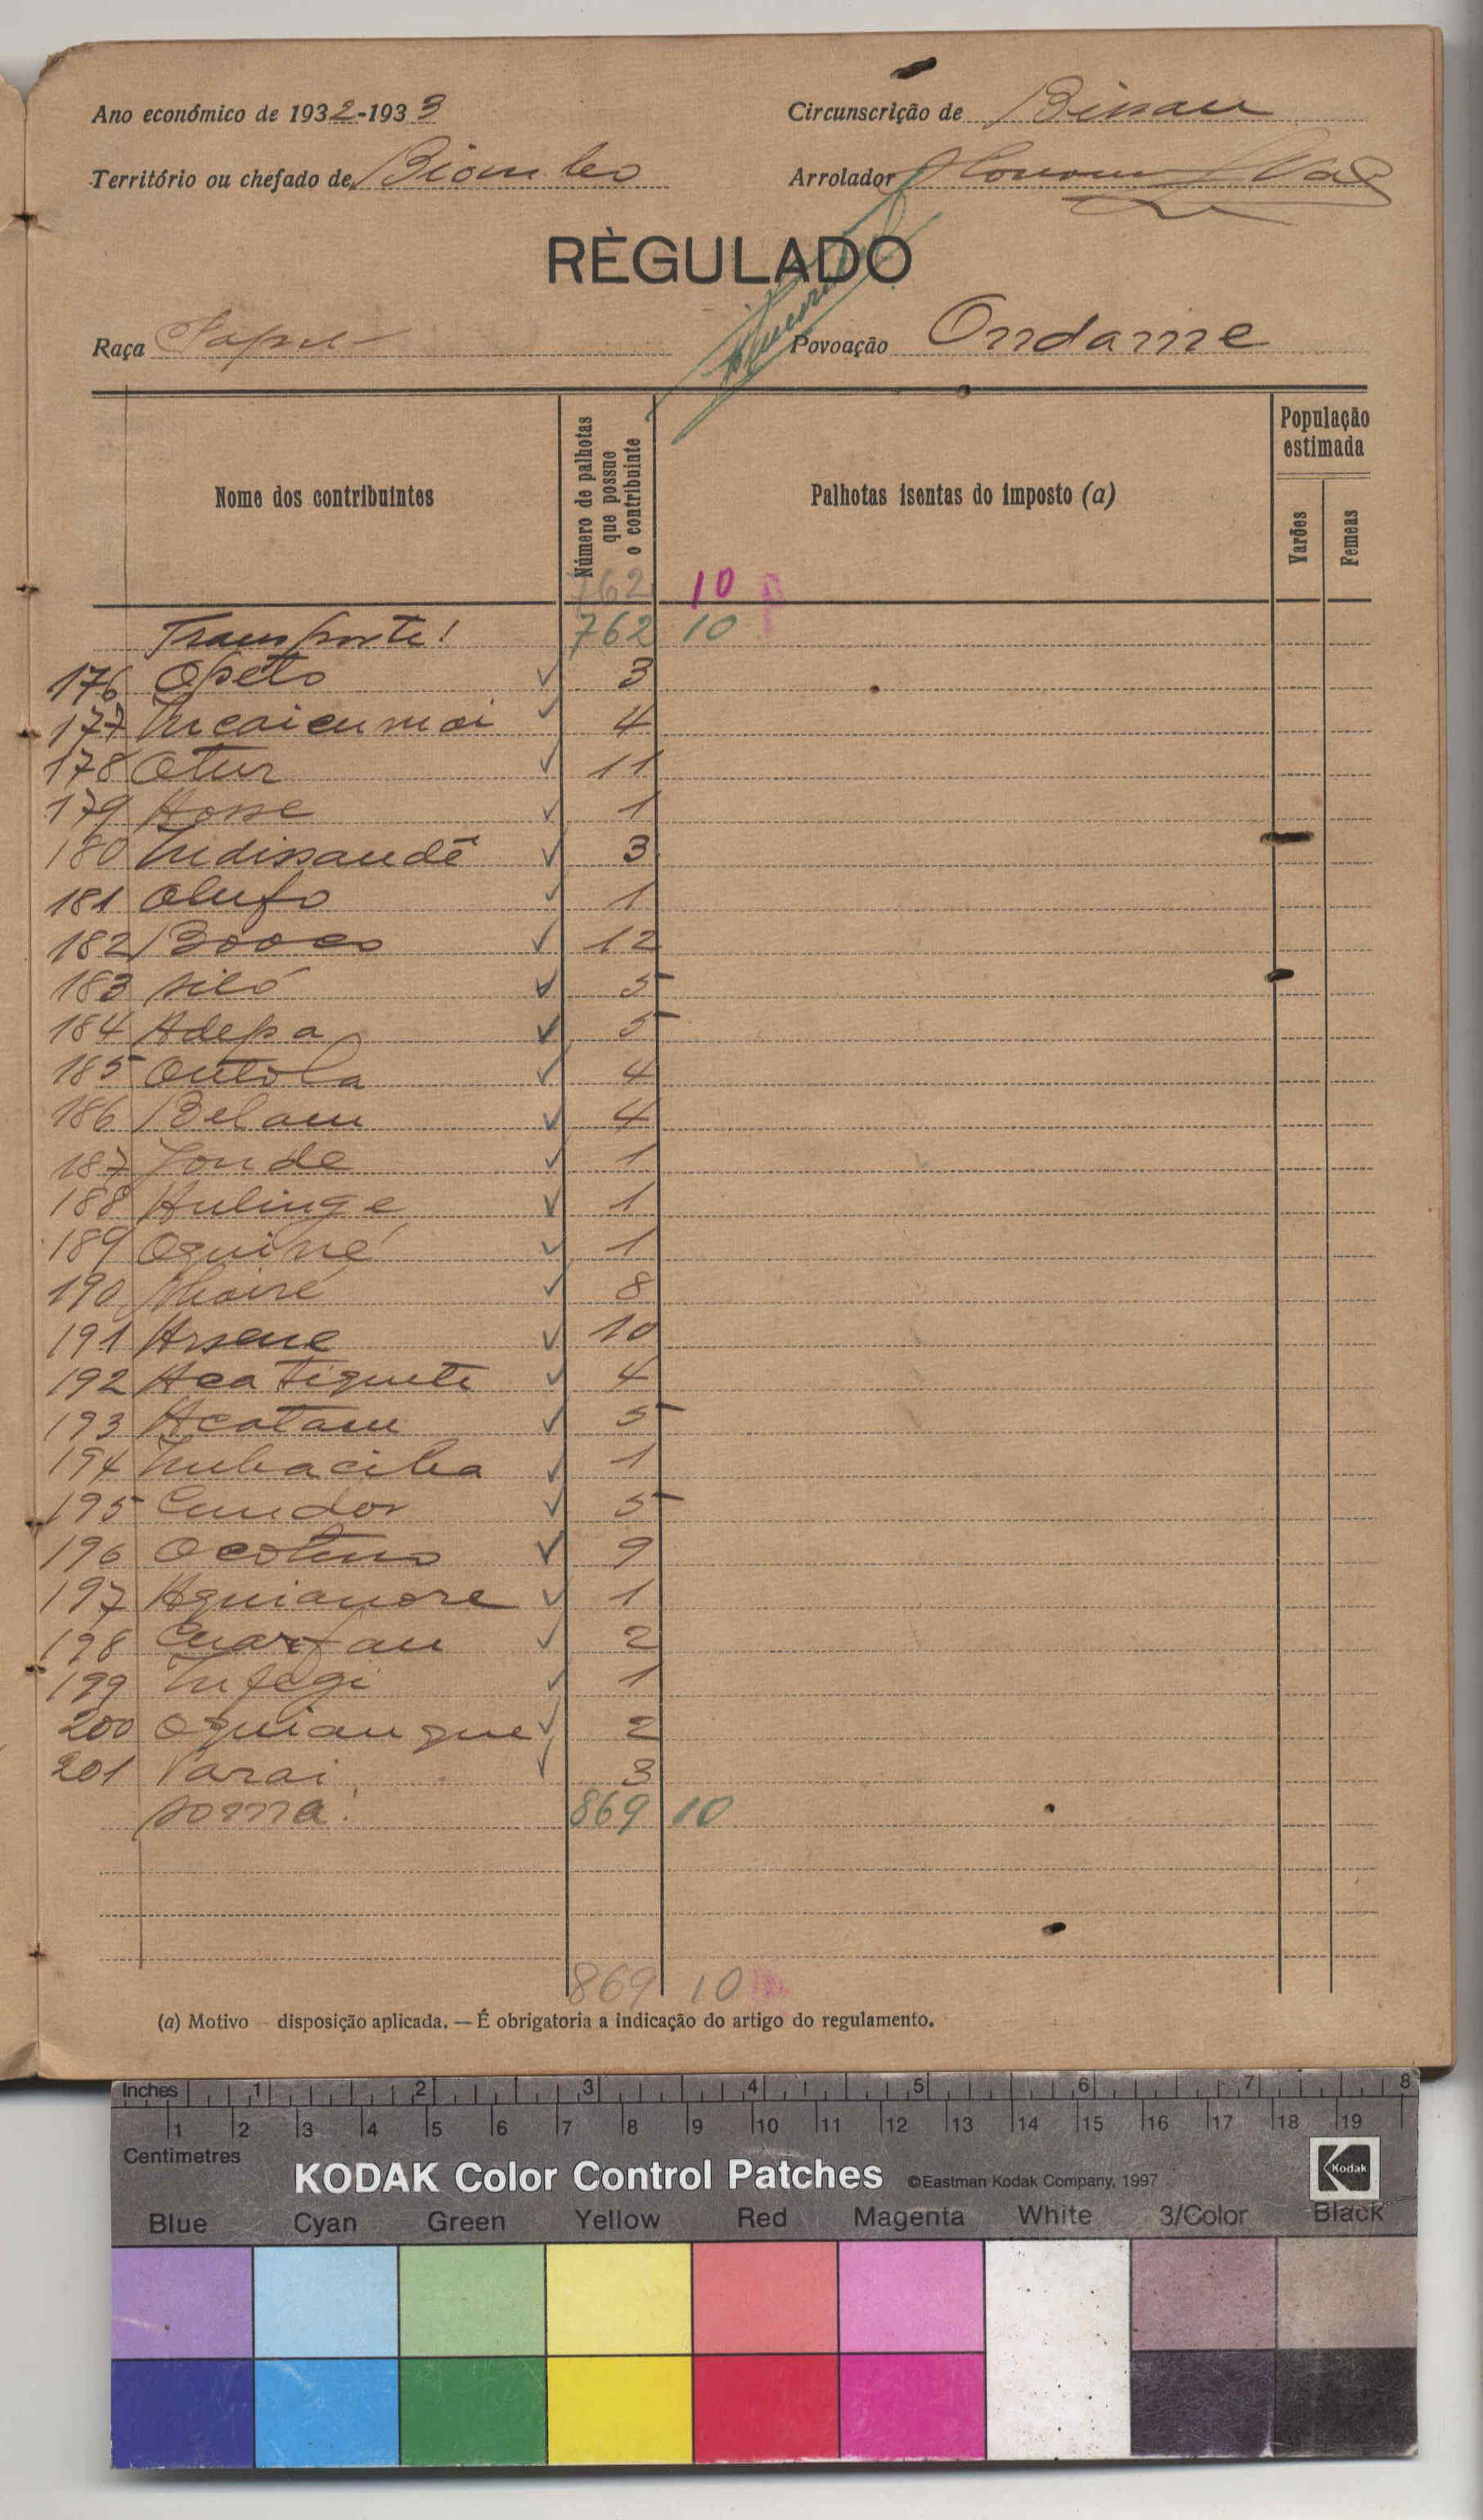 Ano económico de 1932-1933
Circunscrição de Bissau
Território ou chefado de Biombo
Arrolador
RÈGULADO
Raça Papel
Povoação Ondame
Nome dos contribuintes
Número de palhotas que possue o contribuinte
Palhotas isentas do imposto (a)
População estimada
Varões
Femeas
762 10
Transporte! 762 10
176 Opeto ✓ 3
177 Incaicumoi ✓ 4
178 Otur ✓ 11
179 Hosse ✓ 1
180 Indissaudê ✓ 3
181 Olufo ✓ 1
182 Booco ✓ 12
183 Siló ✓ 5
184 Adepa ✓ 5
185 Outola ✓ 4
186 Belam ✓ 4
187 Jonde ✓ 1
188 Hulinge ✓ 1
189 Oquiné ✓ 1
190 ✓ 8
191 Arsene ✓ 10
192 Aca Tiquete ✓ 4
193 Acotam ✓ 5
194 ✓ 1
195 Cundor ✓ 5
196 ✓ 9
197 Aquianore ✓ 1
198 ✓ 2
199 Infegi ✓ 1
200 Oquiangue ✓ 2
201 Varai ✓ 3
Soma! 869 10
869 10
(a) Motivo – disposição aplicada. — É obrigatoria a indicação do artigo do regulamento.
Inches 1 2 3 4 5 6 7 8
1 2 3 4 5 6 7 8 9 10 11 12 13 14 15 16 17 18 19
Centimetres
KODAK Color Control Patches ©Eastman Kodak Company, 1997 Kodak
Blue Cyan Green Yellow Red Magenta White 3/Color Black